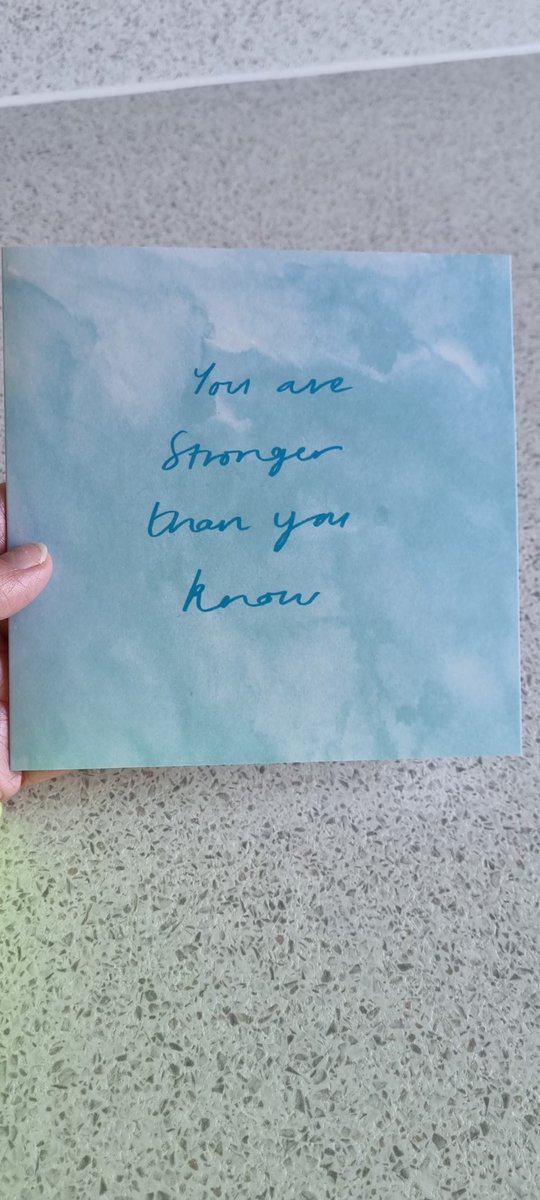 You are
Stronger
than you
know